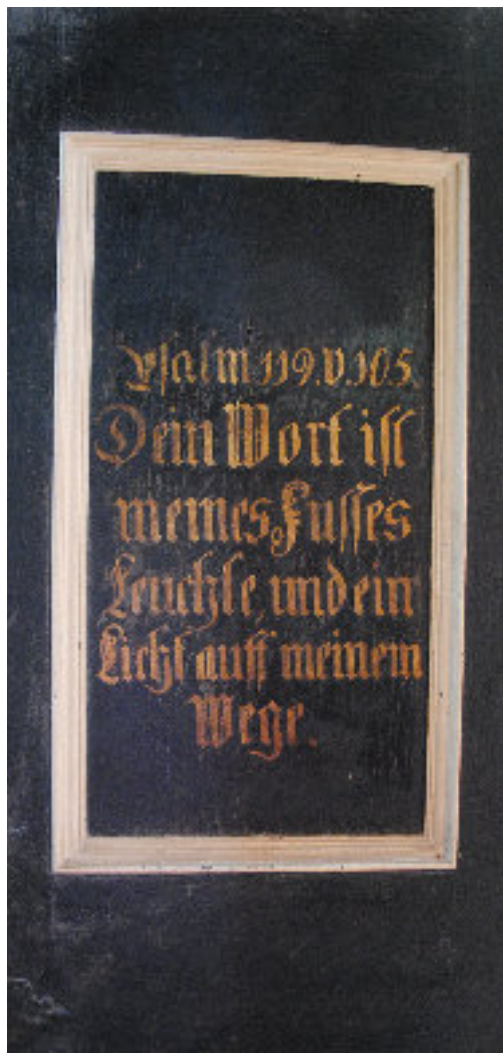 Psalm 119.v.105.
Dein Wort ist
meines Fusses
Leuchte, und ein
Licht auff meinem
Wege.